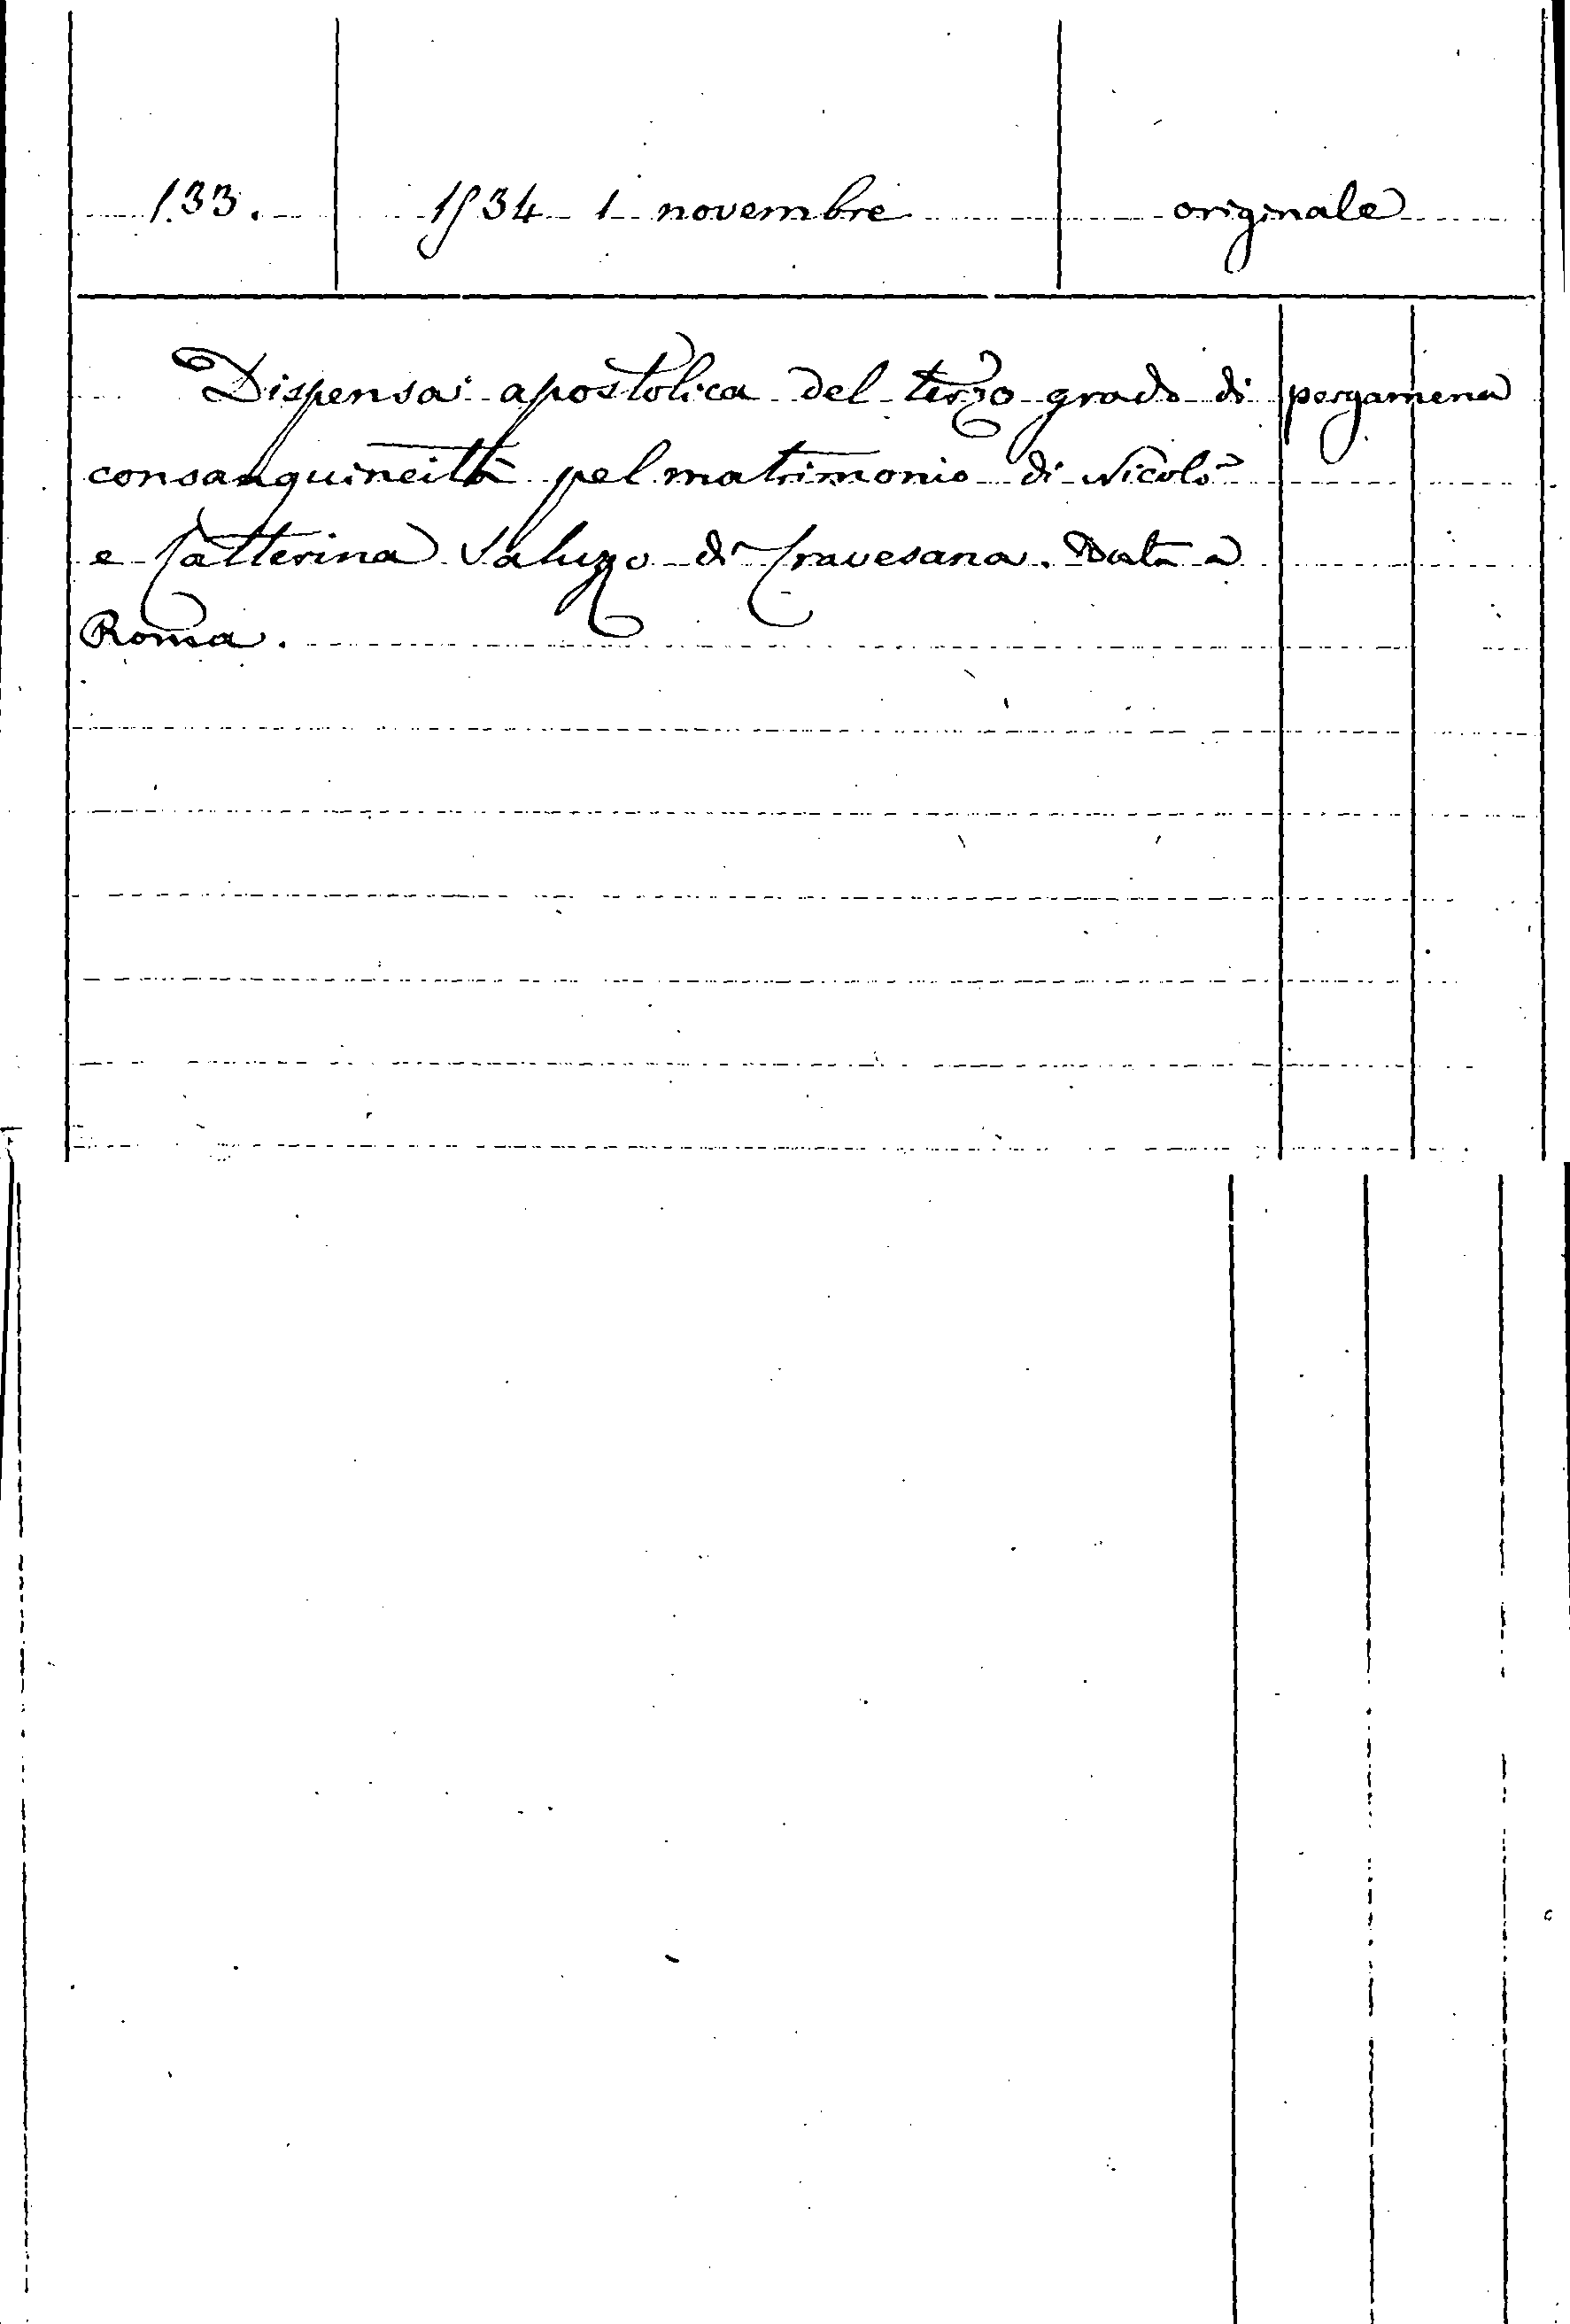 133. 1534 1 novembre originale
Dispensa apostolica del terzo grado di pergamena
consanguineità pel matrimonio di Nicolò
e Catterina Saluzzo di Cravesana. Data a
Roma.